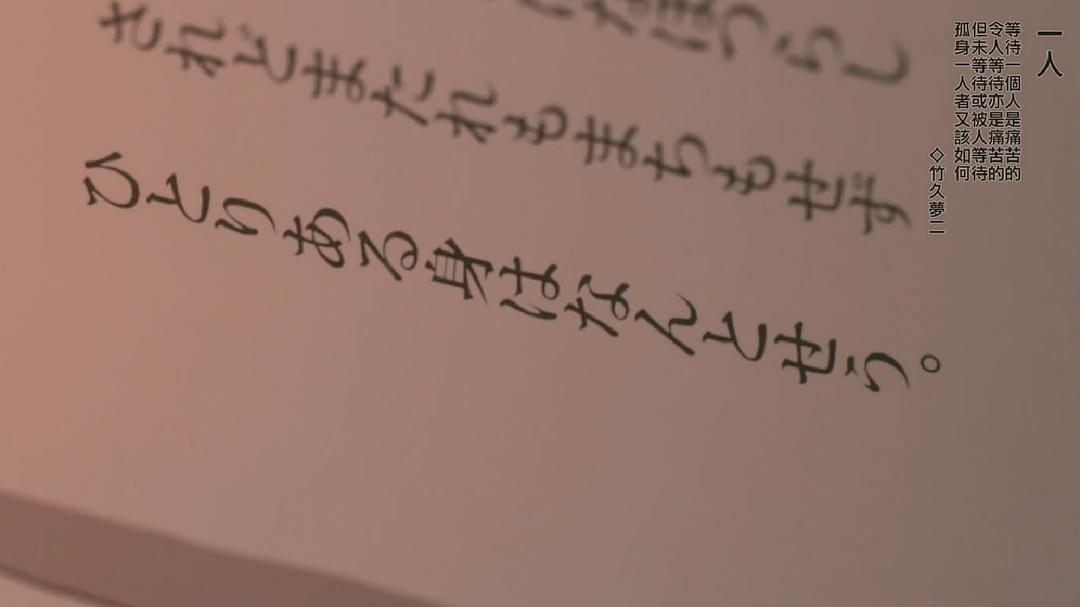 なほつらし
されどまたれもまちもせず
ひとりある身はなんとせう。
一人
等待一個人是痛苦的
令人等待亦是痛苦的
但未等待或被人等待
孤身一人者又該如何
◇竹久夢二